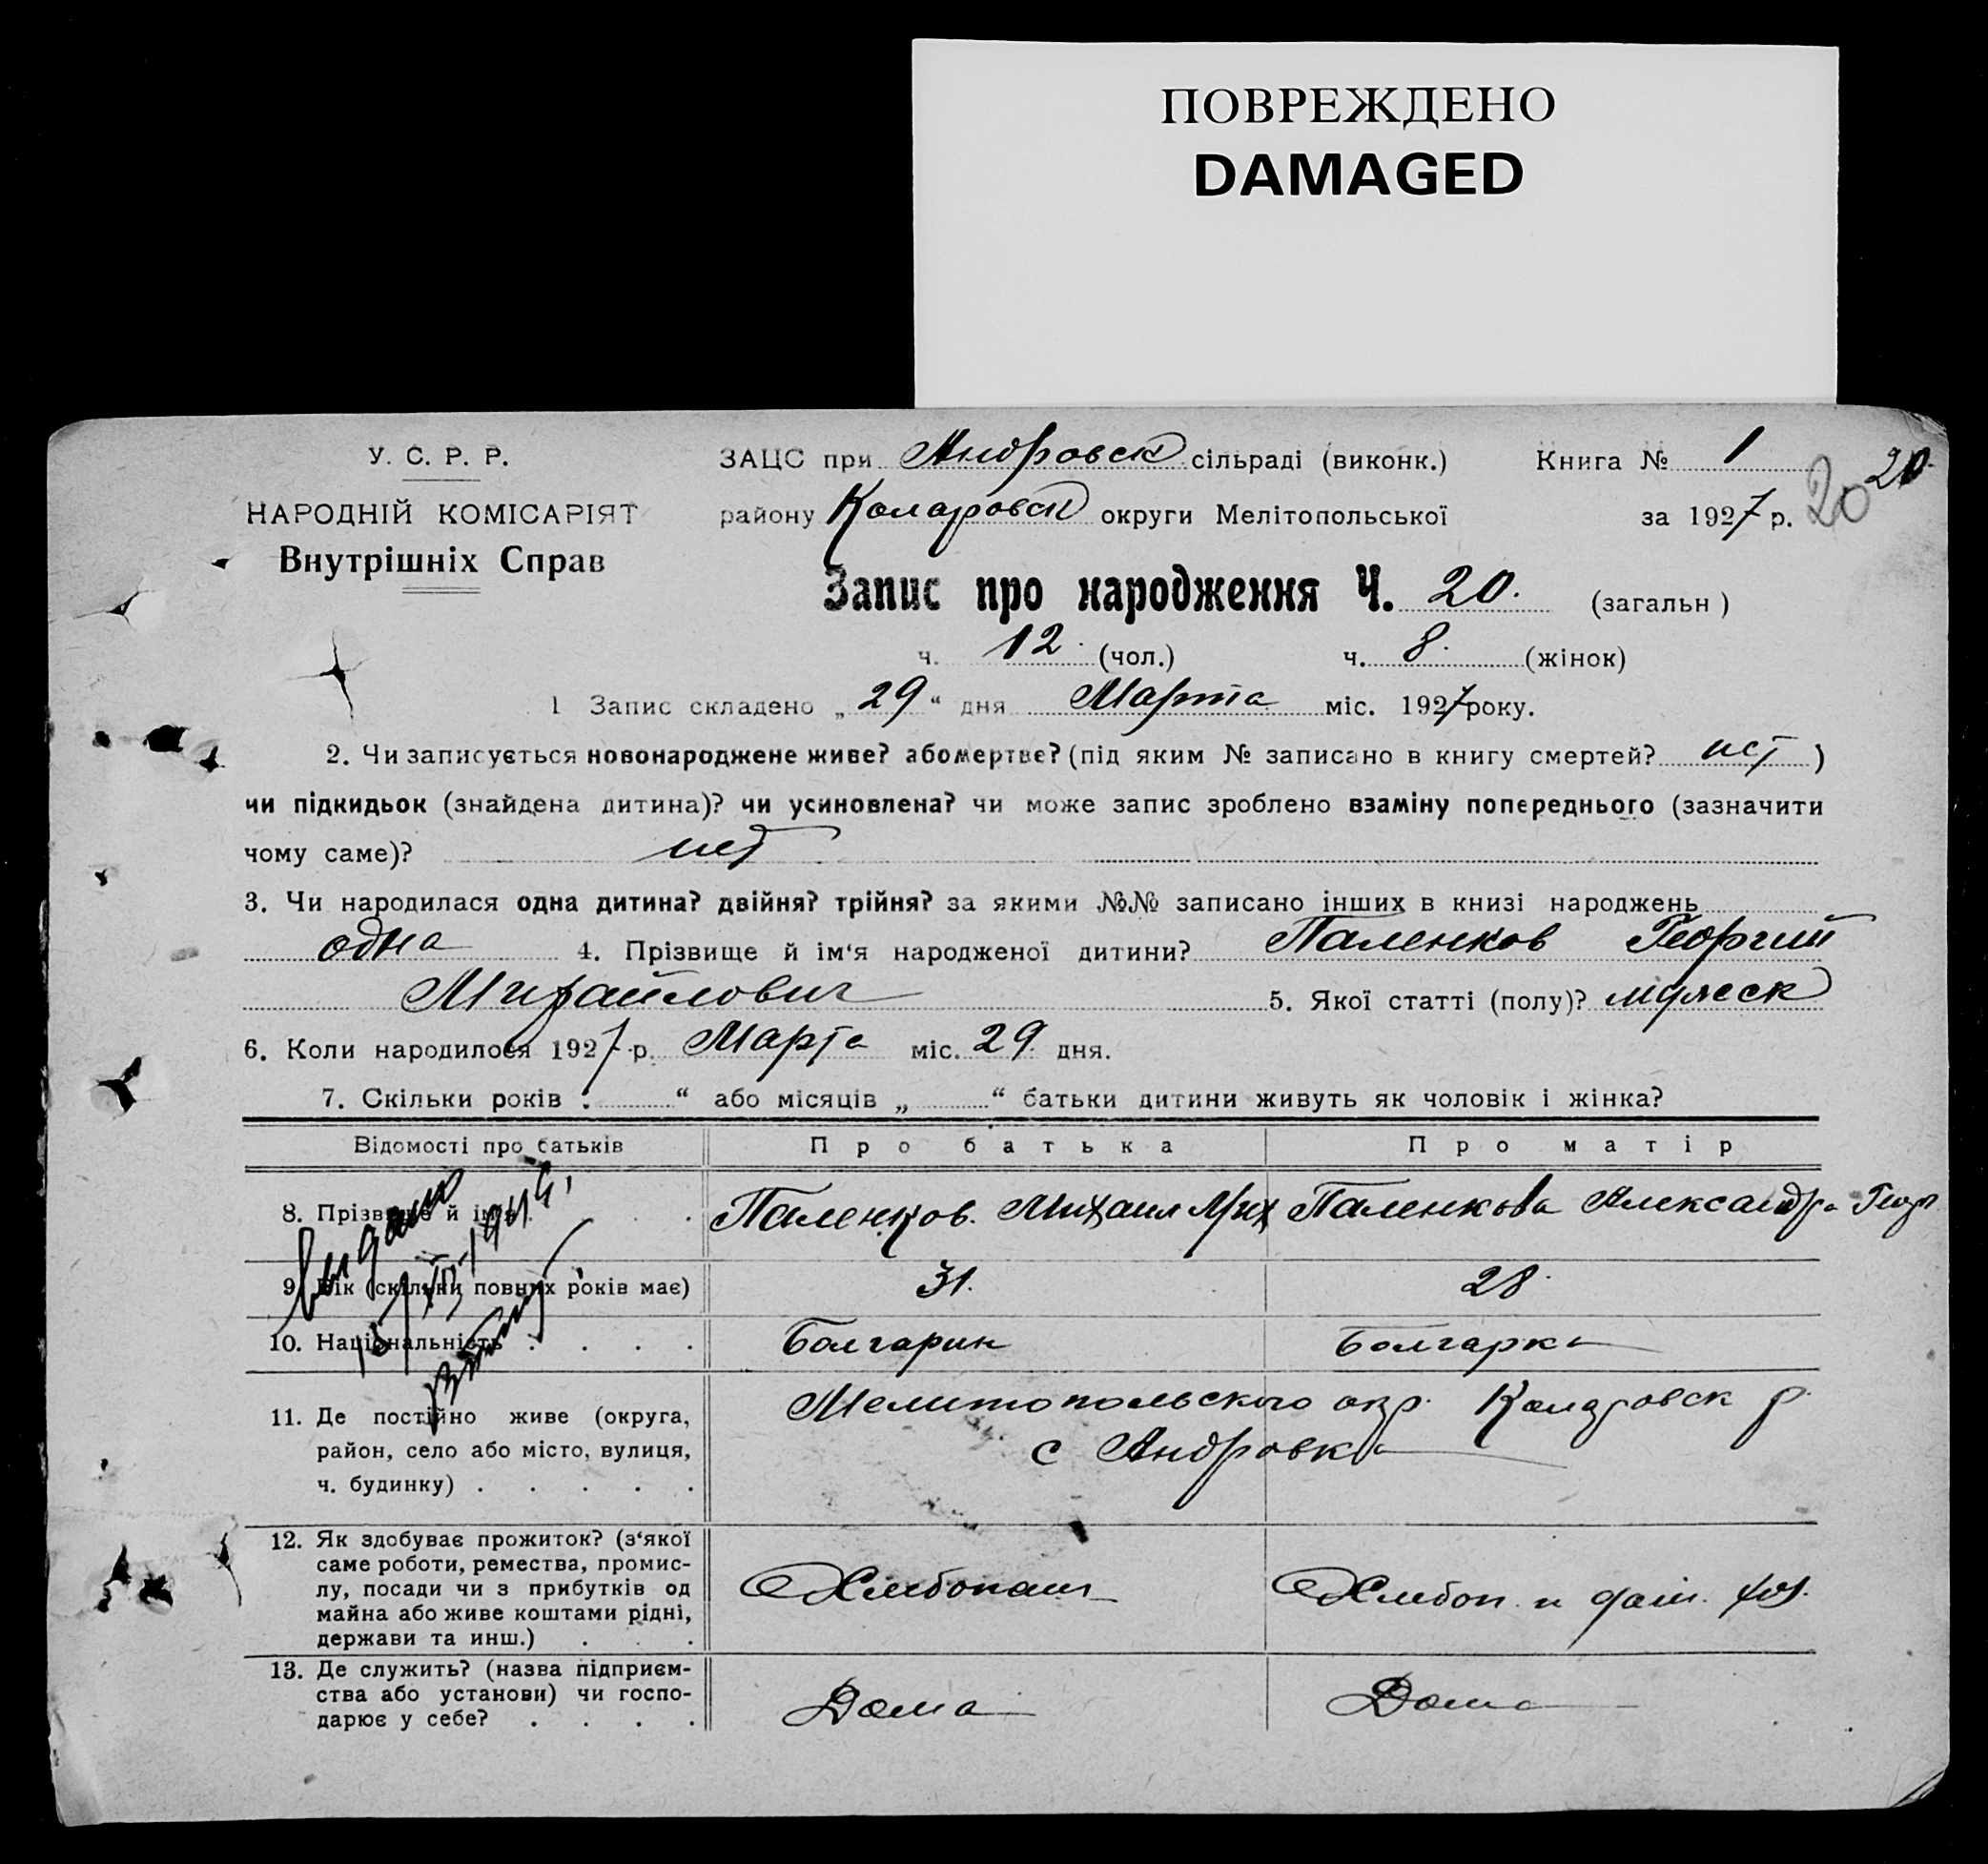 ПОВРЕЖДЕНО
DAMAGED
У. С. Р. Р.
НАРОДНІЙ КОМІСАРІЯТ
Внутрішніх Справ
ЗАЦС при Андровск сільраді (виконк.) Книга № 1
20 20
району Коларовск округи Мелітопольської за 1927 р.
Запис про народження Ч. 20. (загальн)
ч. 12 (чол.) ч. 8. (жінок)
1 Запис складено „29“ дня Марта міс. 1927 року.
2. Чи записується новонароджене живе? або мертве? (під яким № записано в книгу смертей? нет)
чи підкидьок (знайдена дитина)? чи усиновлена? чи може запис зроблено взаміну попереднього (зазначити
чому саме)? нет
3. Чи народилася одна дитина? двійня? трійня? за якими №№ записано інших в книзі народжень
одна 4. Прізвище й ім‘я народженої дитини? Паленков Георгий
Михайлович 5. Якої статті (полу)? мужеск
6. Коли народилося 1927 р. Марта міс. 29 дня.
7. Скільки років „ “ або місяців „ “ батьки дитини живуть як чоловік і жінка?
Відомості про батьків Про батька Про матір
8. Прізвище й ім‘я . . . Паленков. Михаил Мих Паленкова Александра Георг
9. Вік (скільки повних років має) 31. 28.
10. Національність . . . . Болгарин Болгарка
видано
XII 1944
11. Де постійно живе (округа, Мелитопольского окр. Коларовск р.
район, село або місто, вулиця, с Андровка
ч. будинку) . . . . .
12. Як здобуває прожиток? (з‘якої
саме роботи, ремества, промис-
лу, посади чи з прибутків од Хлебопаш Хлебоп. и дом. хоз.
майна або живе коштами рідні,
держави та инш.) . . .
13. Де служить? (назва підприєм-
ства або установи) чи госпо- Дома Дома
дарює у себе? . . . .